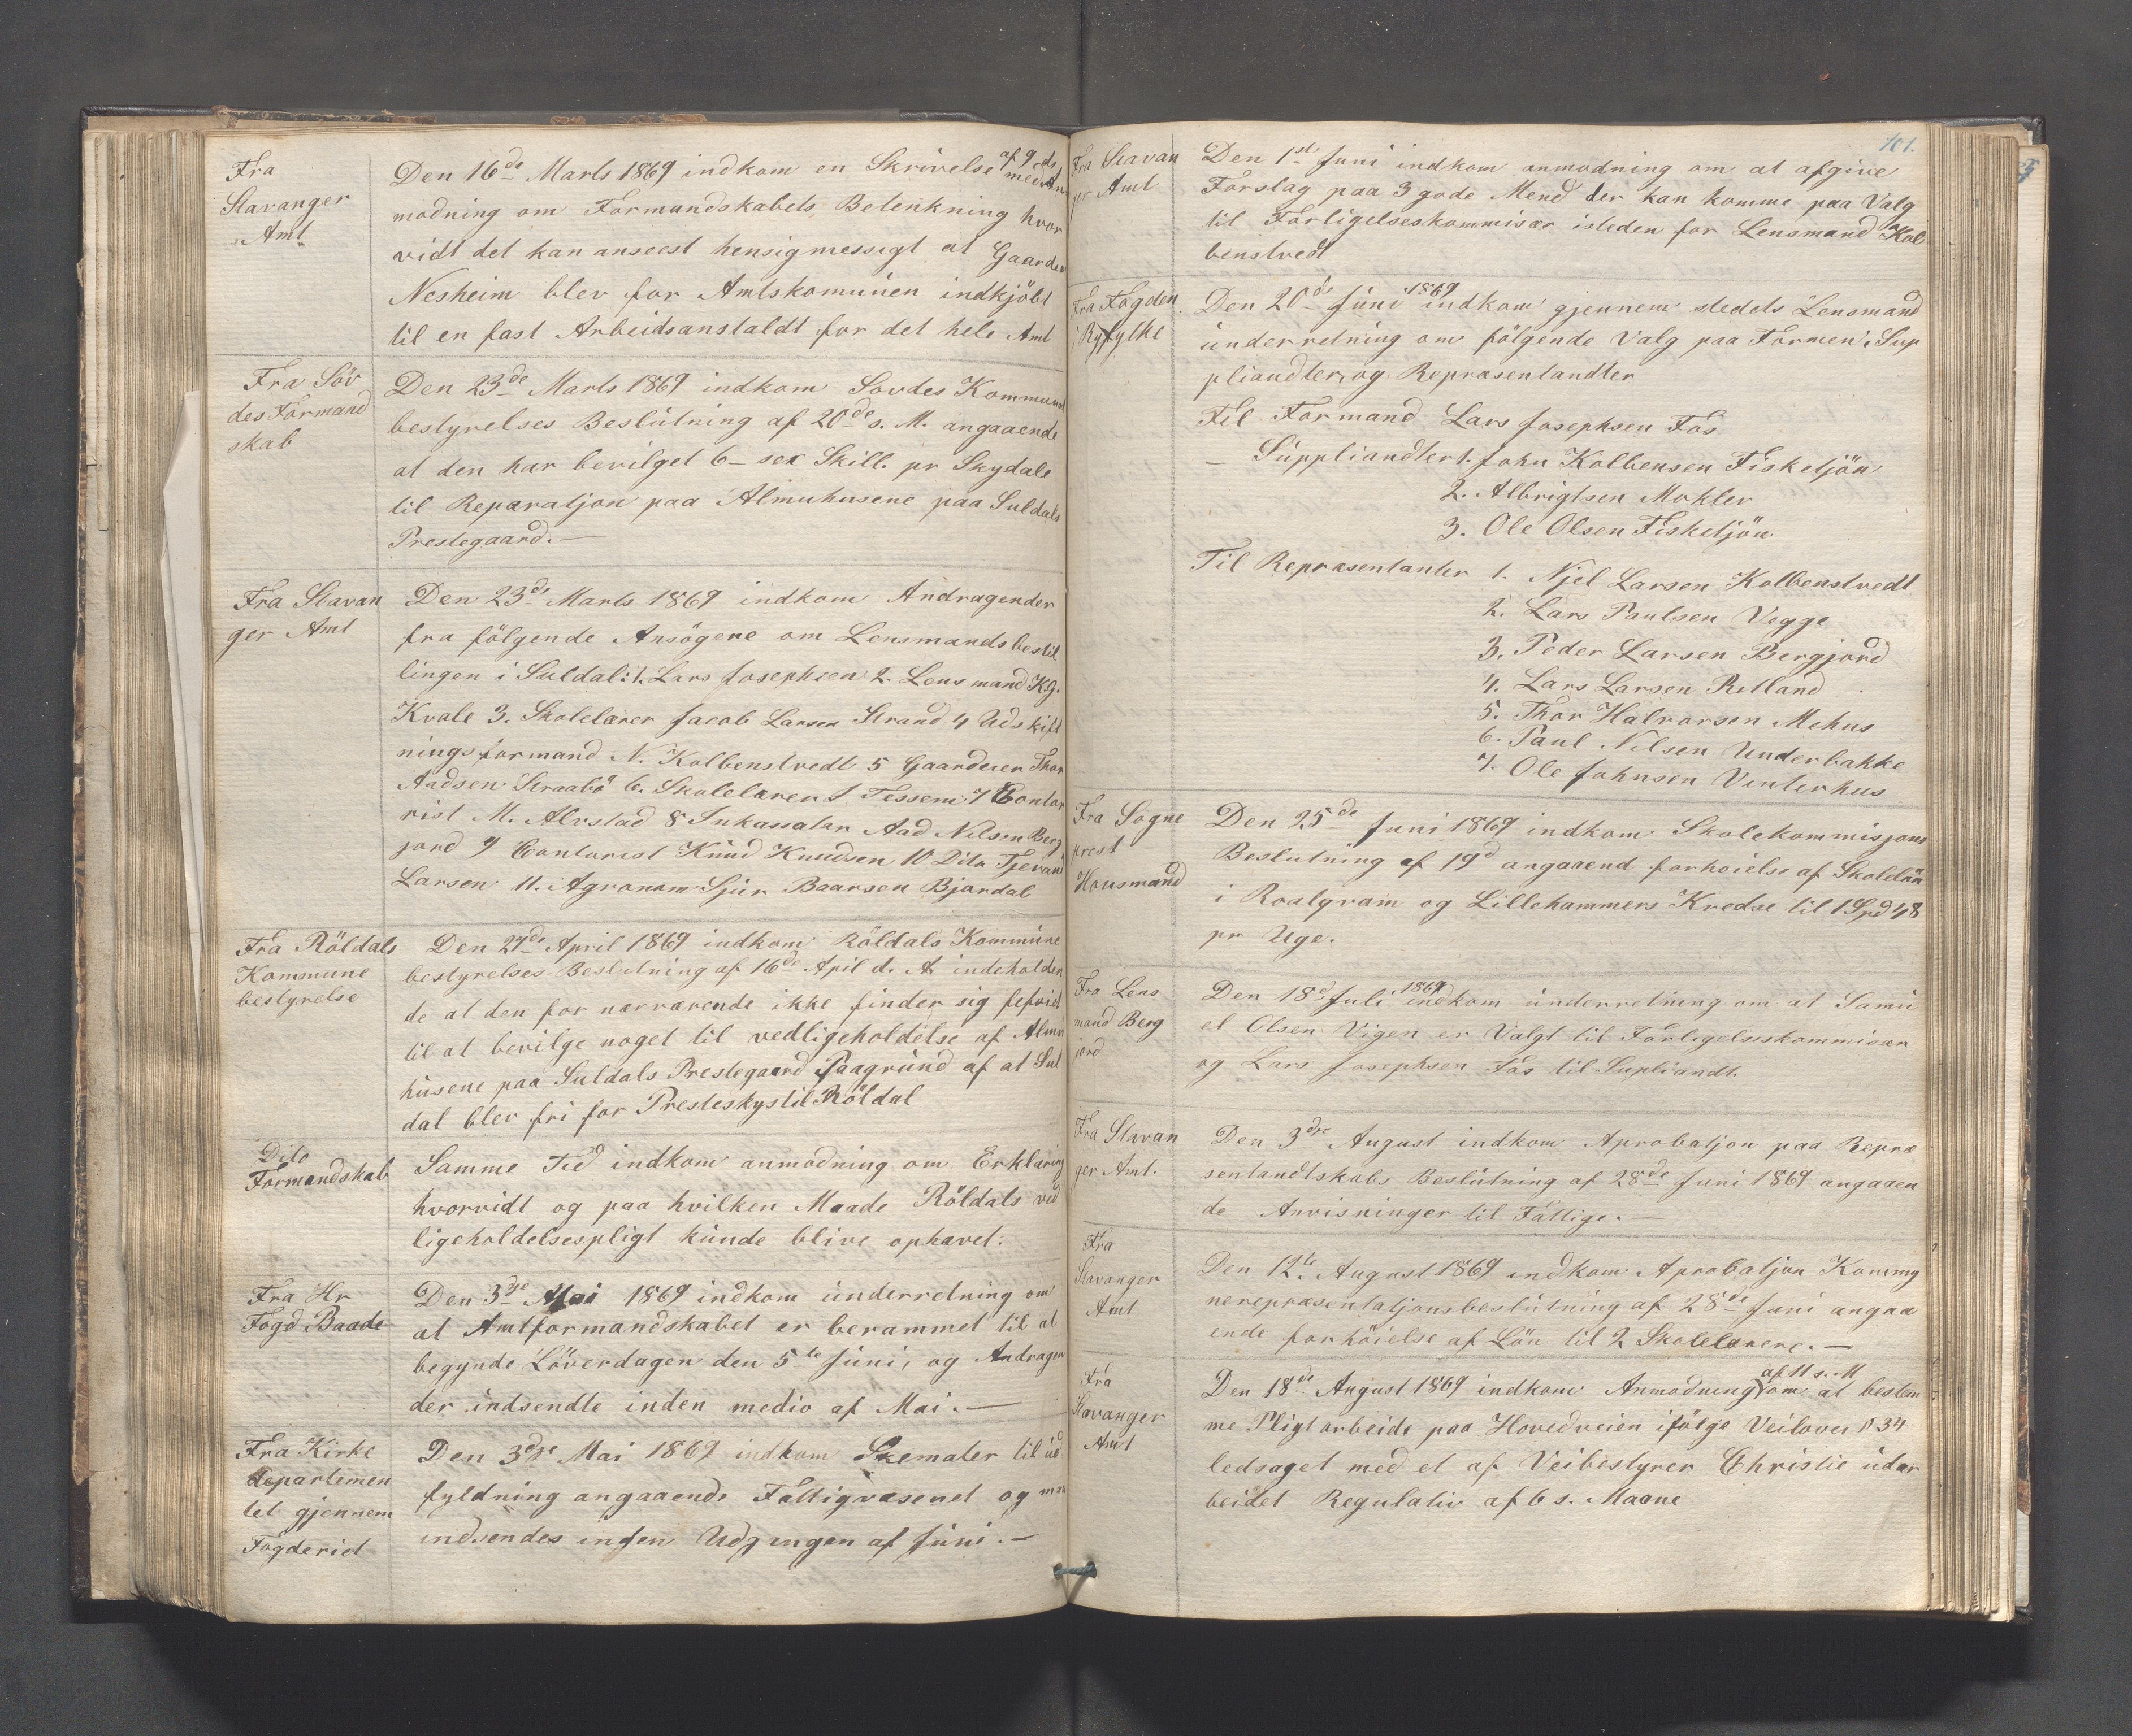 Fra
Stavanger
Amt
Den 16de Marts 1869 indkom en Skrivelse af 9ds med An
modning om Formandskabets Betenkning hvor
vidt det kan anseest hensigmessigt at Gaarden
Nesheim blev for Amtskomunen indkjöbt
til en fast Arbeidsanstaldt for det hele Amt
Fra Söv
des Formand
skab
Den 23de Marts 1869 indkom Sovdes Kommune
bestyrelses Beslutning af 20de s. M. angaaende
at den har bevilget 6 - sex Skill. pr Skydale
til Reparatjon paa Almuhusene paa Suldals
Prestegaard. —
Fra Stavan
ger Amt
Den 23de Marts 1869 indkom Andragender
fra fölgende Ansögere om Lensmandsbestil
lingen i Suldal: 1. Lars Josephsen 2. Lensmand K.G.
Kvale 3. Skolelærer Jacob Larsen Strand 4 Udskift
ningsformand N. Kolbenstvedt 5 Gaardeier Thor
Aadsen Straabö 6. Skolelæren J. Tessem 7 Contor
rist M. Alvstad 8 Inkassator Aad Nilsen Berg
jord 9 Contorist Knud Knudsen 10 Dito Tjeran
Larsen 11. Agronom Sjur Baarsen Bjordal
Fra Röldals
Kommune
bestyrelse
Den 27de April 1869 indkom Röldals Kommune
bestyrelses Beslutning af 16de April d. A. indeholden
de at den for nærværende ikke finder sig feföiet
til at bevilge noget til vedligeholdelse af Almu
husene paa Suldals Prestegaard Paagrund af at Sul
dal blev fri for Presteskys til Röldal
Dito
Formandskab
Samme Tid indkom anmodning om Erklæring
hvorvidt og paa hvilken Maade Röldals ved
ligeholdelsespligt kunde blive ophævet.
Fra Hr
Fogd Baade
Den 3die Mai 1869 indkom underretning om
at Amtformandskabet er berammet til at
begynde Löverdagen den 5te Juni, og Andragen
der indsendte inden medio af Mai. —
Fra Kirke
departemen
tet gjennem
Fogderiet
Den 3die Mai 1869 indkom Skemater til ud
fyldning angaaende Fattigvæsenet og maa
indsendes inden Udgangen af Juni. —
101.
Fra Stavan
ger Amt
Den 1ste Juni indkom anmodning om at afgive
Forslag paa 3 gode Mend der kan komme paa Valg
til Forligelseskommisær isteden for Lensmand Kol
benstvedt
Fra Fogden
i Ryfylke
Den 20de Juni 1869 indkom gjennem stedets Lensmand
underretning om fölgende Valg paa Formen; Sup
pliandter, og Repræsentandter
Til Formand Lars Josephsen Fos
— Suppliandter 1. John Kolbensen Fisketjön
2. Albrigtsen Mokler
3. Ole Olsen Fisketjön
Til Repræsentanter 1. Njel Larsen Kolbenstvedt
2. Lars Paulsen Vegge
3. Peder Larsen Bergjord
4. Lars Larsen Ritland
5. Thor Halvorsen Mehus
6. Paul Nilsen Underbakke
7. Ole Johnsen Vinterhus
Fra Sogne
prest
Housmand
Den 25de Juni 1869 indkom Skolekommisjons
Beslutning af 19d angaaend forhoielse af Skolelön
i Roalqvam og Lillehammers Kredse til 1 Spd 48
pr Uge.
Fra Lens
mand Berg
jord
Den 18d Juli 1869 indkom underretning om at Samu
el Olsen Vigen er Valgt til Forligelseskommisær
og Lars Josephsen Fos til Supliandt.
Fra Stavan
ger Amt.
Den 3die August indkom Aprobatjon paa Repræ
sentandtskabs Beslutning af 28de Juni 1869 angaaen
de Anvisninger til Fattige. —
Fra
Stavanger
Amt
Den 12te August 1869 indkom Aprobatjon Kommu
nerepræsentatjonsbeslutning af 28de Juni angaa
ende forhöielse af Lön til 2 Skolelærere. —
Fra
Stavanger
Amt
Den 18de August 1869 indkom Anmodning af 11 s. M om at bestem
me Pligtarbeide paa Hovedveien ifölge Veiloven § 34
ledsaget med et af Veibestyrer Christie udar
beidet Regulativ af 6 s. Maane